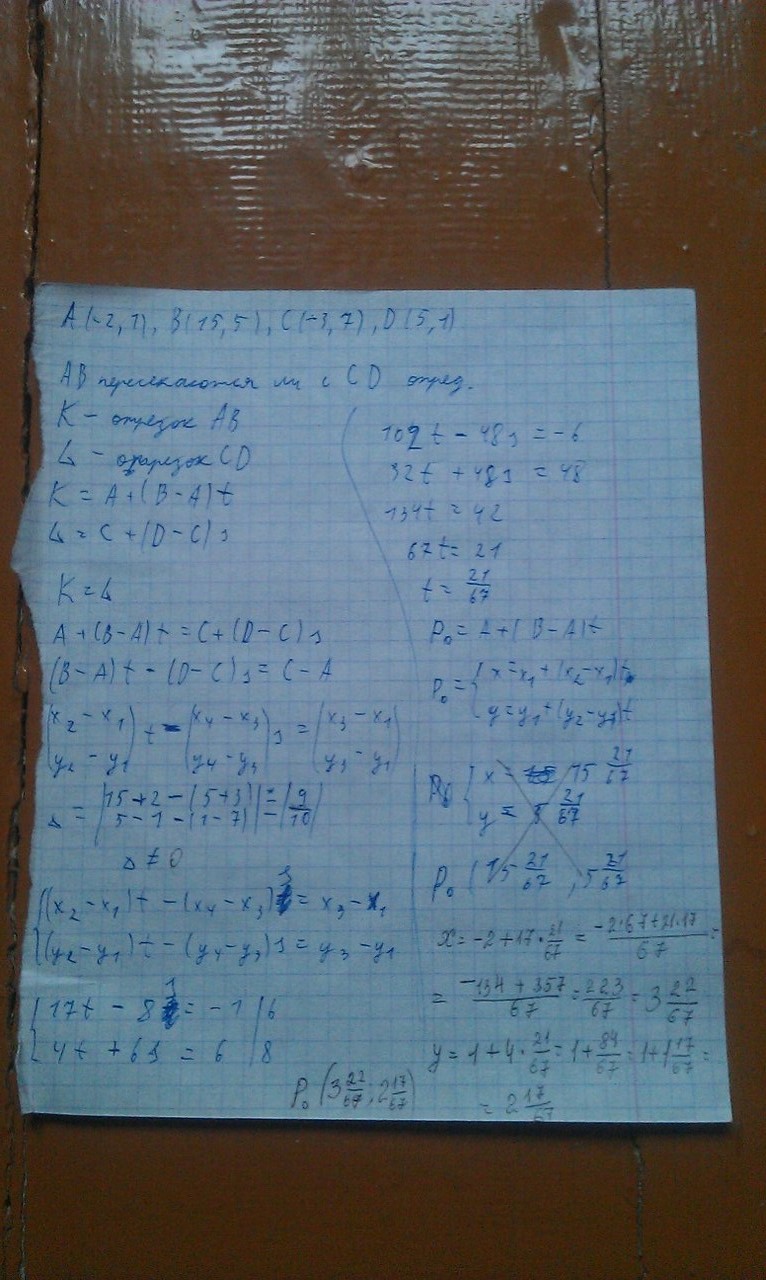 A(-2,1), B(15,5), C(-3,7), D(5,1)
AB пересекаются ли с CD опред.
K - отрезок AB
L - отрезок CD
K = A+(B-A)t
L = C+(D-C)s
K = L
A+(B-A)t = C+(D-C)s
(B-A)t - (D-C)s = C-A
(x₂-x₁ y₂-y₁) t - (x₄-x₃ y₄-y₃) s = (x₃-x₁ y₃-y₁)
Δ = |15+2-(5+3)| = |9
5-1-(1-7)| = |10|
Δ ≠ 0
{(x₂-x₁)t - (x₄-x₃)s = x₃-x₁
(y₂-y₁)t - (y₄-y₃)s = y₃-y₁
{17t - 8s = -1 |6
4t + 6s = 6 |8
102t - 48s = -6
32t + 48s = 48
134t = 42
67t = 21
t = 21/67
P₀ = A+(B-A)t
P₀ = {x = x₁+(x₂-x₁)t
y = y₁+(y₂-y₁)t
P₀ {x = 15 21/67
y = 5 21/67
P₀ (15 21/67, 5 21/67
x = -2+17·21/67 = -2·67+21·17/67 =
= -134+357/67 = 223/67 = 3 22/67
y = 1+4·21/67 = 1+84/67 = 1+1 17/67 =
= 2 17/67
P₀ (3 22/67; 2 17/67)